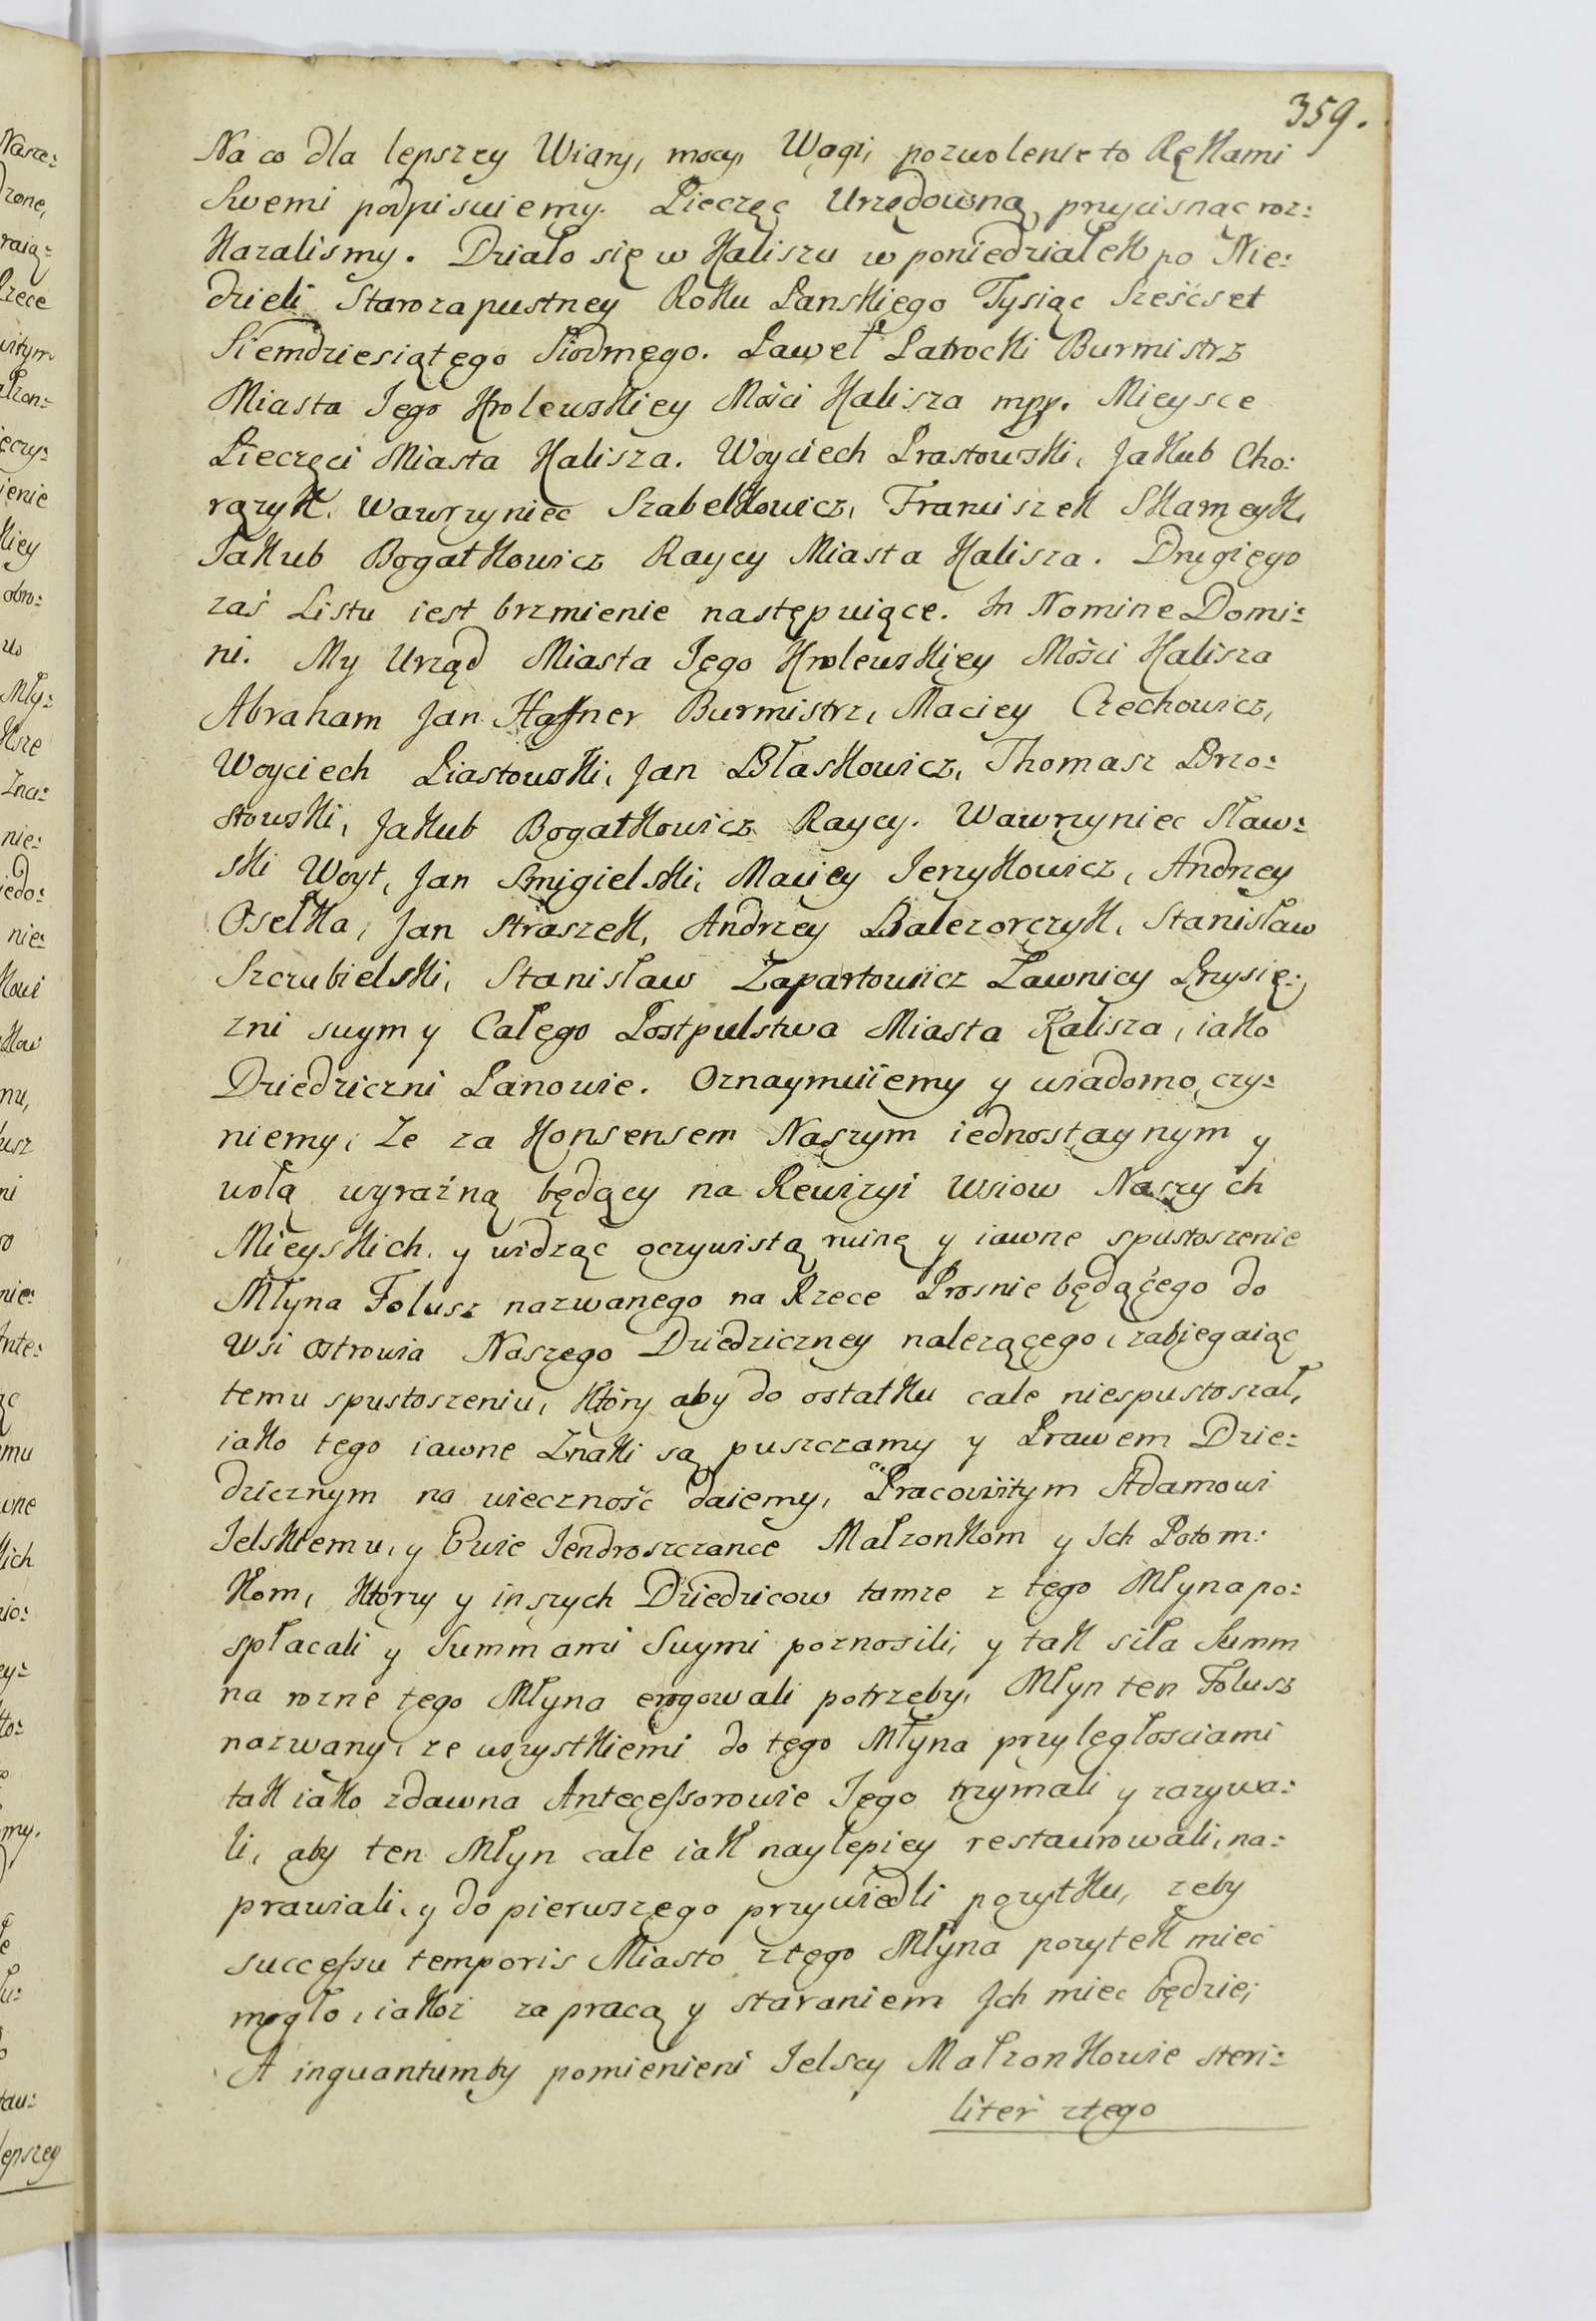 359.
Na co dla lepszey Wiary, mocy, Wagi, pozwolenie to Rękami
Swemi podpisuiemy. Pieczęc Urzędowną przycisnąc roz:
kazalismy. Działo się w Kaliszu w poniedziałek po Nie:
dzieli Starozapustney Roku Panskiego Tysiąc Sześcset
Siemdziesiątego Siodmego. Paweł Patrocki Burmistrz
Miasta Jego Krolewskiey Mości Kalisza mpp. Mieysce
Pieczęci Miasta Kalisza. Woyciech Prastowski, Jakub Cho:
rązyk, Wawrzyniec Szabelkowicz, Franciszek Skamęyk,
Jakub Bogatkowicz Raycy Miasta Kalisza. Drugięgo
zaś Listu iest brzmienie następuiące. In Nomine Domi:
ni. My Urząd Miasta Jęgo Krolewskięy Mości Kalisza
Abraham Jan Haffner Burmistrz, Maciey Czechowicz,
Woyciech Piastowski, Jan Błaskowicz, Thomasz Brzo:
stowski, Jakub Bogatkowicz Raycy. Wawrzyniec Sław:
ski Woyt, Jan Smigielski, Maciey Jerzykowicz, Andrzey
Osełka, Jan Straszek, Andrzey Balezorczyk, Stanisław
Szczubielski, Stanisław Zapartowicz Ławnicy Przysię:
zni swym y Całęgo Postpulstwa Miasta Kalisza, iako
Dziedziczni Panowie. Oznaymuiiemy y wiadomo czy:
niemy, Ze za Konsensem Naszym iednostaynym y
wolą wyraźną będący na Rewizyi Wsiow Naszych
Mieyskich, y widząc oczywistą ruinę y iawne spustoszenie
Młyna Folusz nazwanego na Rzece Prosnie będącego do
Wsi Ostrowia Naszęgo Dziedziczney nalezącego, zabiegaiąc
temu spustoszeniu, ktory aby do ostatku cale niespustoszał,
iako tego iawne Znaki są, puszczamy y Prawem Dzie:
dzicznym na wieczność daiemy, Pracowitym Adamowi
Jelskiemu, y Ewie Jendroszczance Małzonkom y Ich Potom:
kom, ktorzy y inszych Dziedzicow tamze z tęgo Młyna po:
spłacali y Summami Swymi poznosili, y tak siła Summ
na rozne tęgo Młyna erogowali potrzeby, Młyn ten Folusz
nazwany, ze wszystkiemi do tęgo Młyna przyległosciami
tak iako zdawna Antecessorowie Jęgo trzymali y zazywa:
li, aby ten Młyn cale iak naylepiey restaurowali, na:
prawiali, y do pierwszęgo przywiedli pozytku, zeby
successu temporis Miasto z tęgo Młyna pozytek miec
mogło, iakoż za pracą y staraniem Ich miec będzie;
A inquantumby pomienieni Jelscy Małzonkowie steri:
liter z tęgo